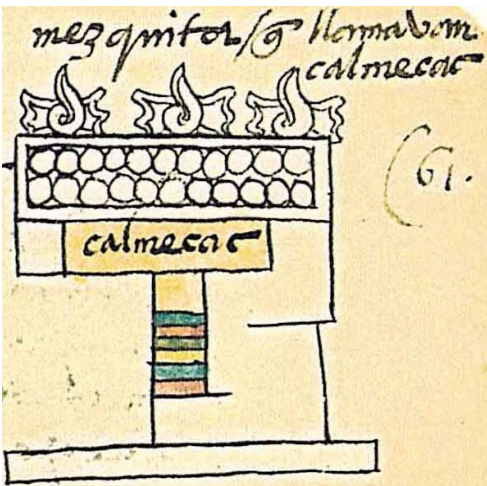 mezquitas / q̃ llamavan
calmecac
(61.
calmecac